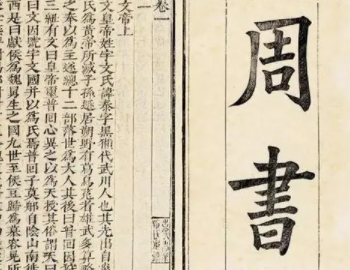 周書
卷一
文帝上
文皇帝姓宇文氏諱泰字黑獺代武川人也其先出自
氏爲黃帝所滅子孫遯居朔野有葛烏菟者雄武多算略
之奉以爲主遂總十二部落世爲大人其後曰普回因狩
三紐有文曰皇帝璽普回心異之以爲天授其俗謂天曰
文因號宇文國并以爲氏焉普回子莫那自陰山南徙
西是曰獻侯爲魏舅生之國九世至侯豆歸爲慕容晃所